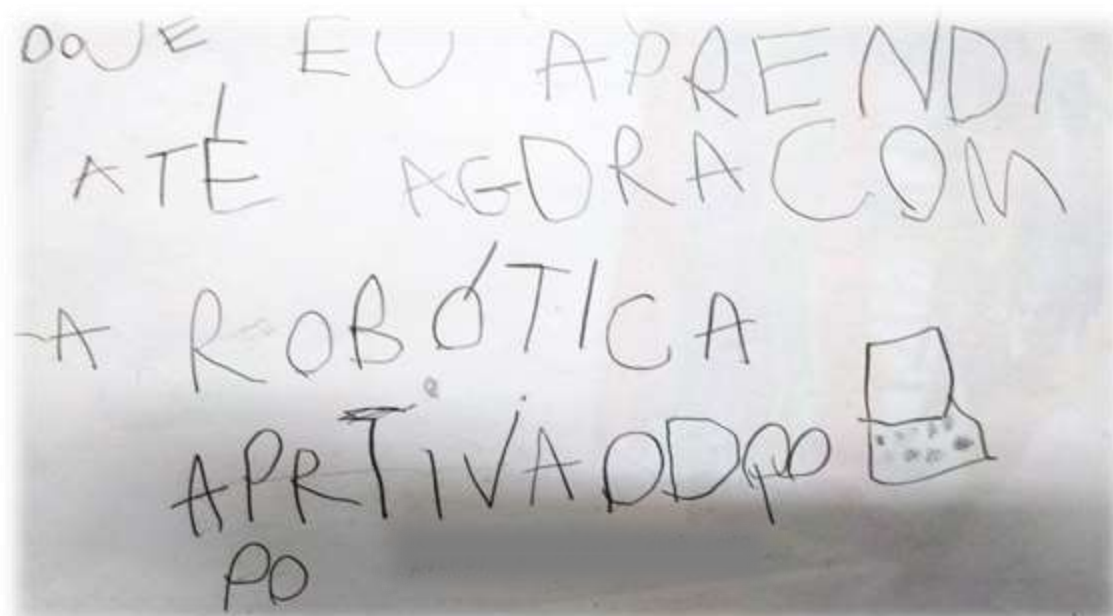 OOUE EU APRENDI
ATÉ AGORA COM
A ROBÓTICA
APRTIVAODQO
PO